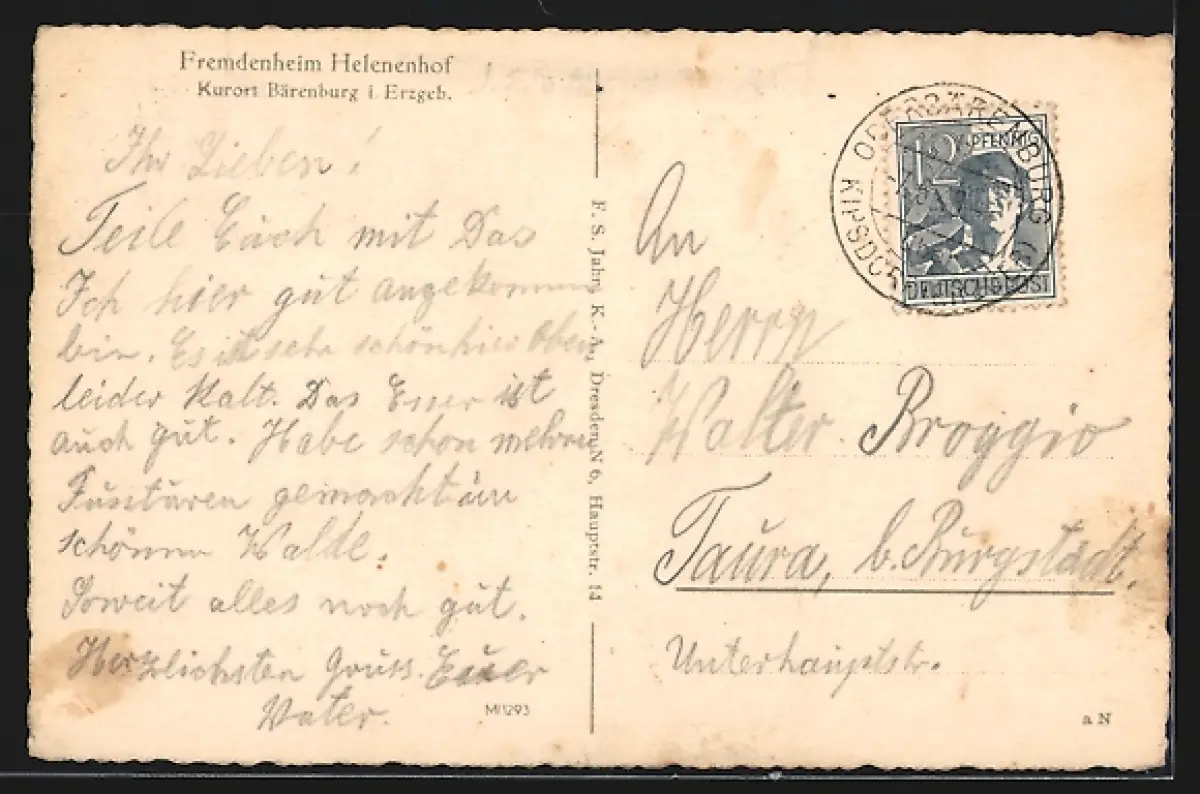 Fremdenheim Helenenhof
Kurort Bärenburg i. Erzgeb.
Ihr Lieben!
Teile Euch mit Das
Ich hier gut angekommen
bin. Es ist sehr schön hier oben
leider Kalt. Das Essen ist
auch gut. Habe schon mehrere
gemacht im
schönen Walde.
Soweit alles noch gut.
Herzlichsten Gruss. Euer
Vater.
MI1293
F. S. Jahn, K.-A., Dresden-N 6, Hauptstr. 14
12 PFENNIG
DEUTSCHE POST
OBERBÄRENBURG
KIPSDORF
An
Herrn
Walter Broggio
Taura, b. Burgstädt.
Unterhauptstr.
a N